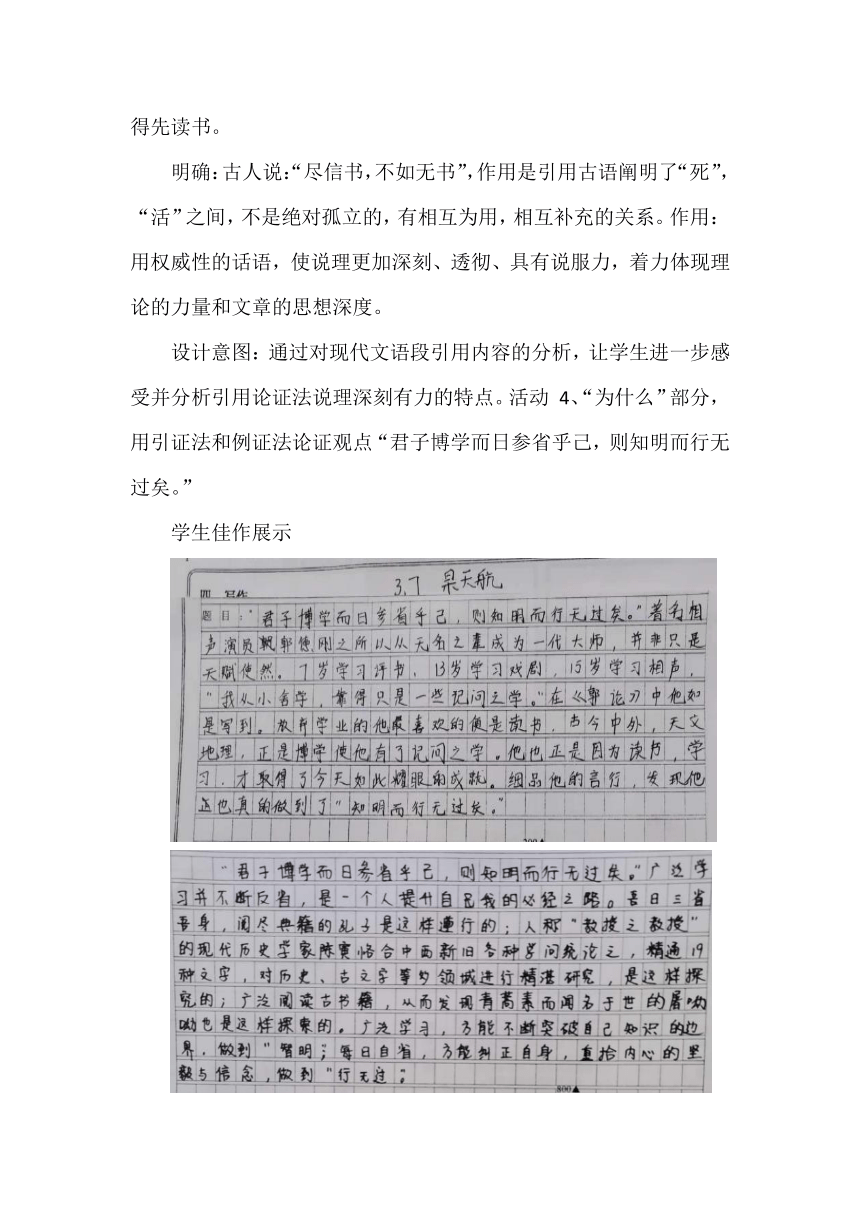 得先读书。
明确：古人说：“尽信书，不如无书”，作用是引用古语阐明了“死”，
“活”之间，不是绝对孤立的，有相互为用，相互补充的关系。作用：
用权威性的话语，使说理更加深刻、透彻、具有说服力，着力体现理
论的力量和文章的思想深度。
设计意图：通过对现代文语段引用内容的分析，让学生进一步感
受并分析引用论证法说理深刻有力的特点。活动 4、“为什么”部分，
用引证法和例证法论证观点“君子博学而日参省乎己，则知明而行无
过矣。”
学生佳作展示
四 写作
3.7 杲天航
题目：“君子博学而日参省乎己，则知明而行无过矣。”著名相
声演员郭德刚之所以从无名之辈成为一代大师，并非只是
天赋使然。7岁学习评书，13岁学习戏剧，15岁学习相声，
“我从小舍学，靠得只是一些记问之学。”在《郭论》中他如
是写到。放弃学业的他最喜欢的便是读书，古今中外，天文
地理，正是博学使他有了记问之学。他也正是因为读书，学
习，才取得了今天如此耀眼的成就。细品他的言行，发现他
也真的做到了“知明而行无过矣。”
“君子博学而日参省乎己，则知明而行无过矣。”广泛学
习并不断反省，是一个人提升自己我的必经之路。吾日三省
吾身，阅尽典籍的孔子是这样践行的；人称“教授之教授”
的现代历史学家陈寅恪合中西新旧各种学问统论之，精通19
种文字，对历史、古文字等多领域进行精湛研究，是这样探
究的；广泛阅读古书籍，从而发现青蒿素而闻名于世的屠呦
呦也是这样探索的。广泛学习，方能不断突破自己知识的边
界，做到“智明”；每日自省，方能纠正自身，重拾内心的里
数与信念，做到“行无过”；
800▲